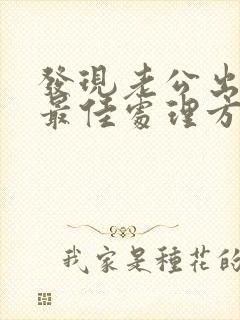 發現老公出
最佳處理方
我家是種花的